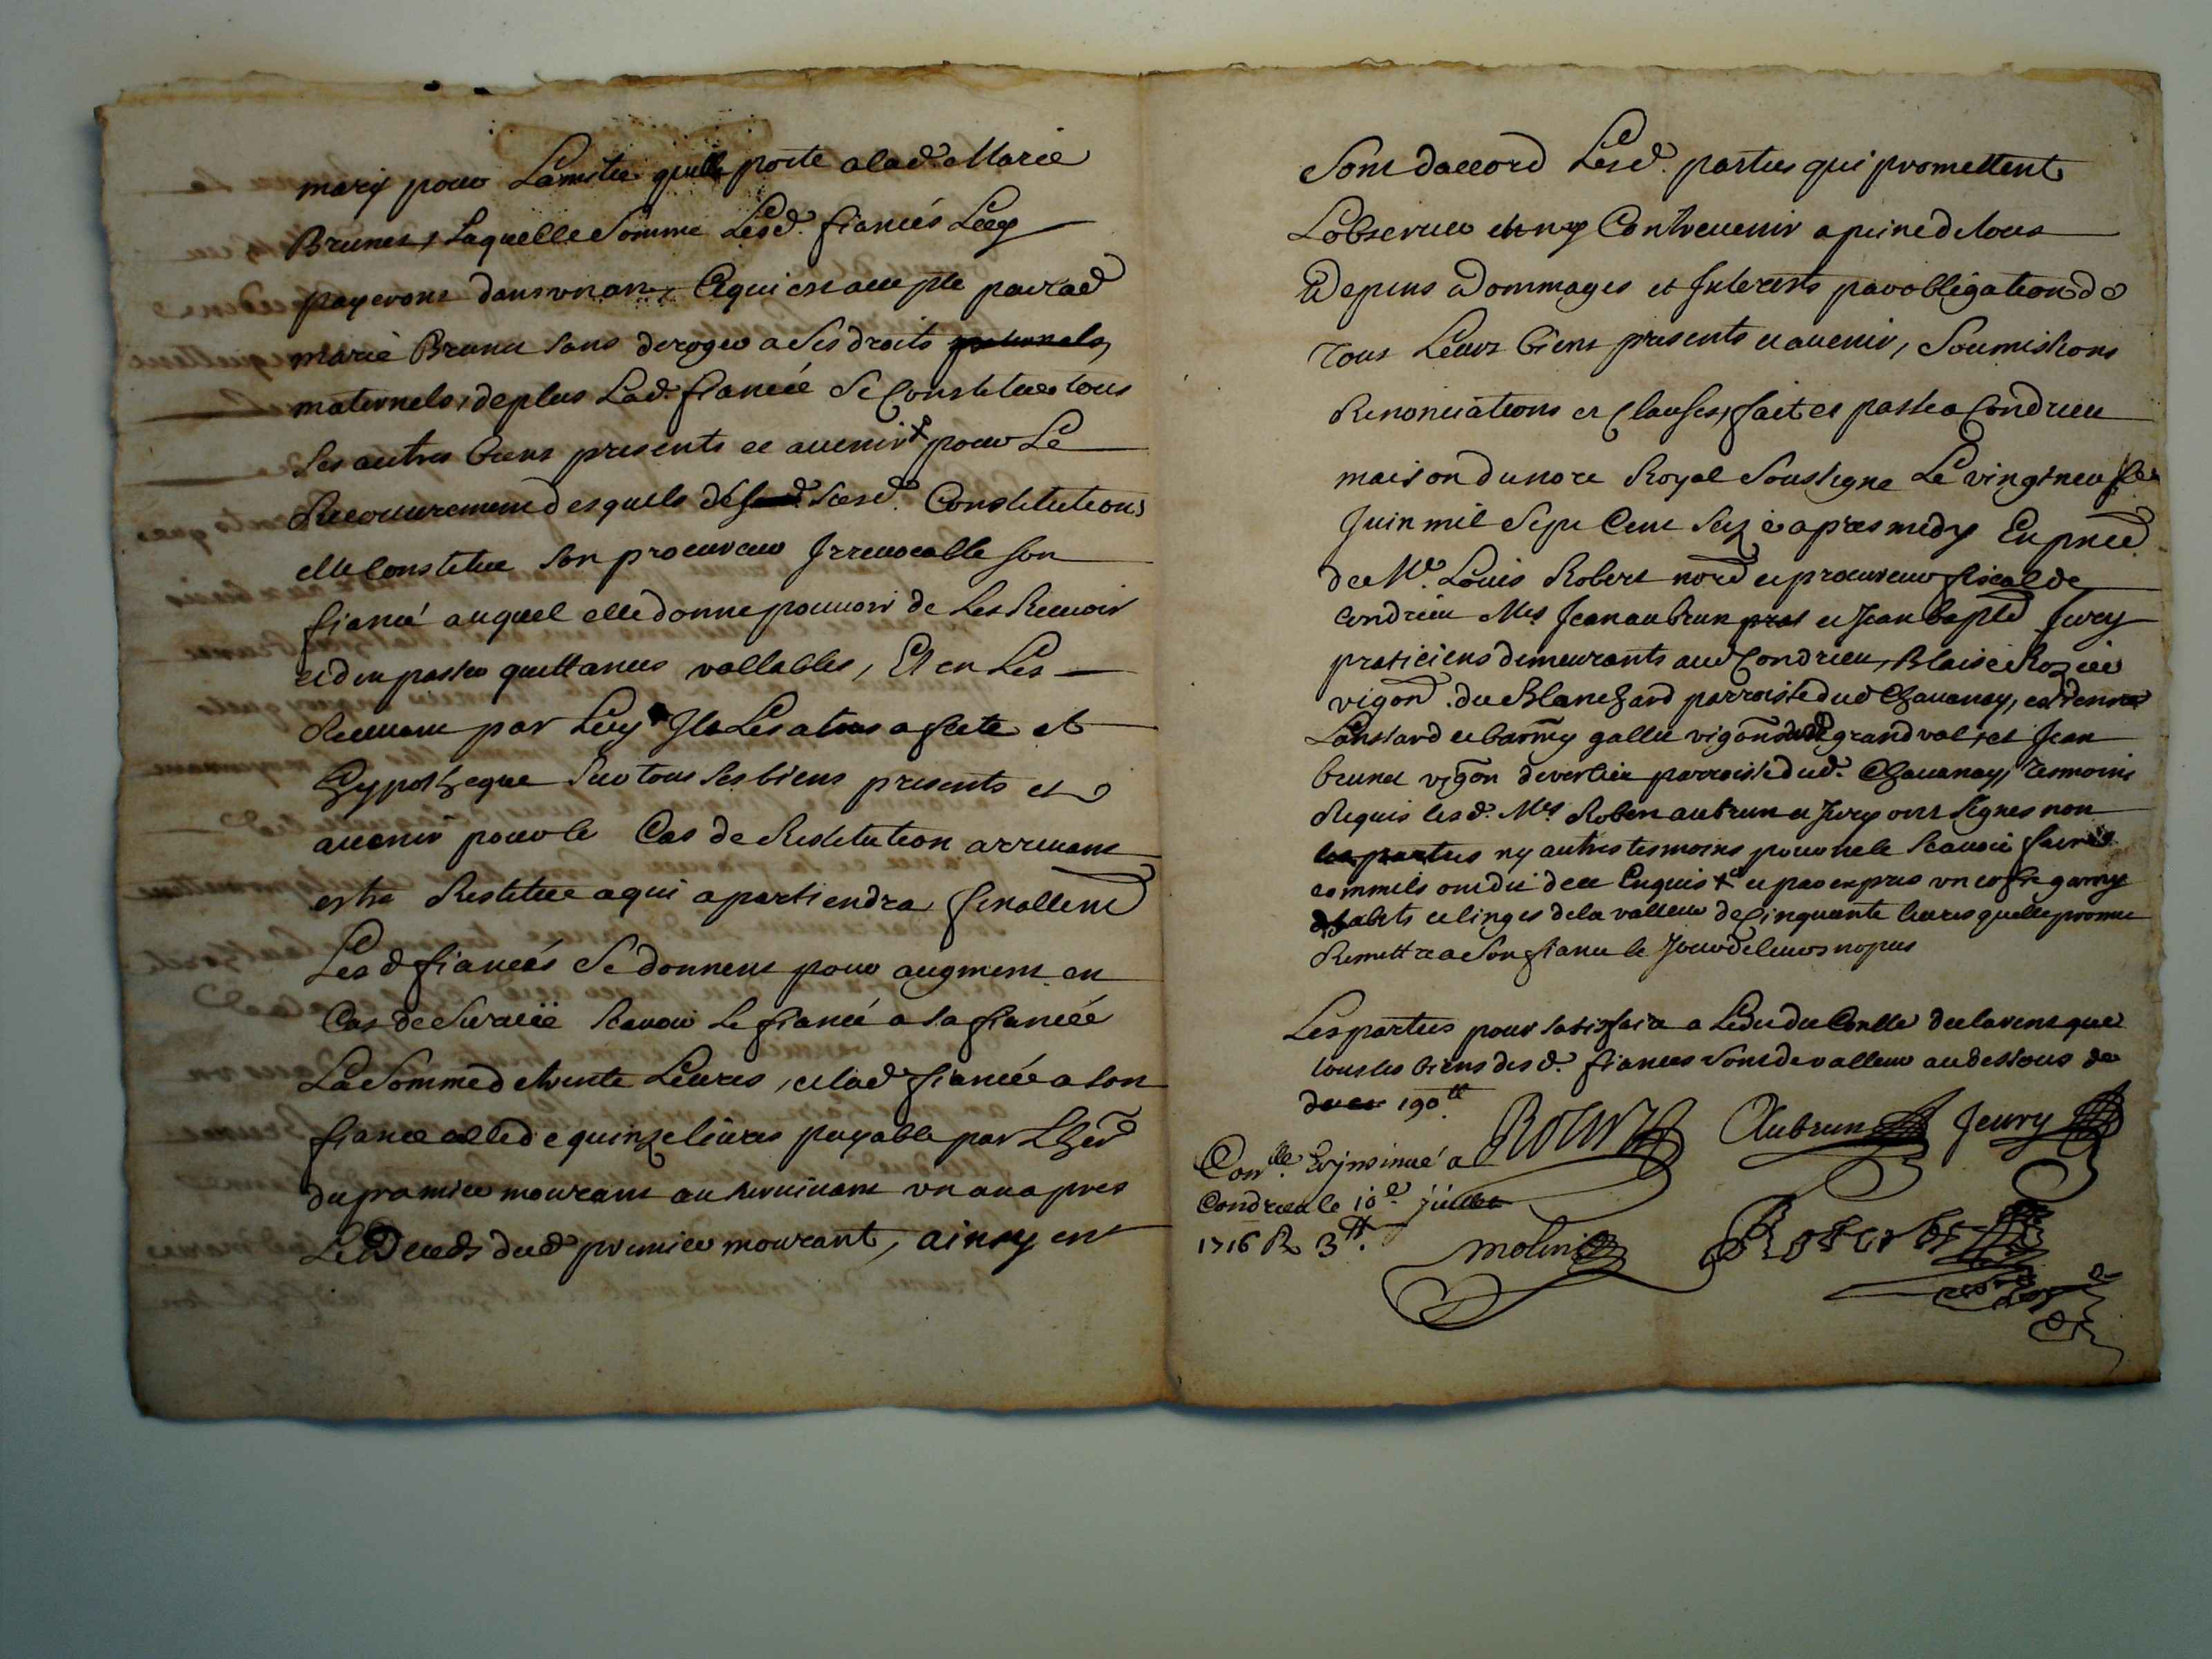 mary pour Lamitie quelle porte a lad. Marie
Brunet, Laquelle Somme Lesd. fiancés Luy
payeront dans un an, Ce qui est accepte par lad
marie Brunet sans deroger a Ses droits
maternels, de plus Lad. fiancée Se Constitue tous
Ses autres biens presents et avenir + pour Le
Recouvrement desquels Sesd. Constitutions
elle Constitue Son procureur Irrevocable Son
fiancé auquel elle donne pouvoir de Les Recevoir
et den passer quittances vallables, Et en Les
Recevant par Luy Il Les a
hypotheque Sur tous Ses biens presents et
avenir pour le Cas de Restitution arrivant
estre Restitué a qui apartiendra finallemt
Lesd fiancés Se donnent pour augment en
Cas de Survie Scavoir Le fiancé a Sa fiancée
La Somme de trente Livres, et lad fiancée a Son
fiancé celle de quinze livres payable par Lher
du premier mourant au Survivant un an apres
Le Deceds dud premier mourant, ainsy en
Sont daccord Lesd. parties qui promettent
Lobserver et ny Contrevenir a peine de tous
Depens Dommages et Interests par obligation de
Tous Leurs biens presents et avenir, Soumissions
Renonciations et Clauses, fait et passé a Condrieu
maison du nore Royal Soussigne Le vingtneuf
Juin mil Sept Cent Seize apres midy En pnce
de Me. Louis Robert nore et procureur fiscal de
Condrieu Mes Jean aubrun et Jean bapte Jury
praticiens demeurants aud Condrieu, Blaise Rozier
vigon. du Blanchard parroisse dud Chavanay,
et barmy gallet vigon grandval, et Jean
brunet vigon de verlieu parroisse dud. Chavanay, Tesmoins
Requis lesd. Mes Robert aubrun et Jury ont Signes non
les parties ny autres tesmoins pour ne le Scavoir faire
comme ils ont dit de ce Enquis + et par expres un cofre garny
dhabits et linges de la valleur de Cinquante livres quelle promet
Remettre a Son fiancé le Jour de leurs nopces
Les parties pour Satisfaire a Ledit du Conlle declarent que
tous les biens desd. fiances Sont de valleur au dessous de
190 ll.
Robert Aubrun Jeury
Conlle. Et jnsinué a
Condrieu le 10e. juillet
1716 R 3 ll.
molin Robert